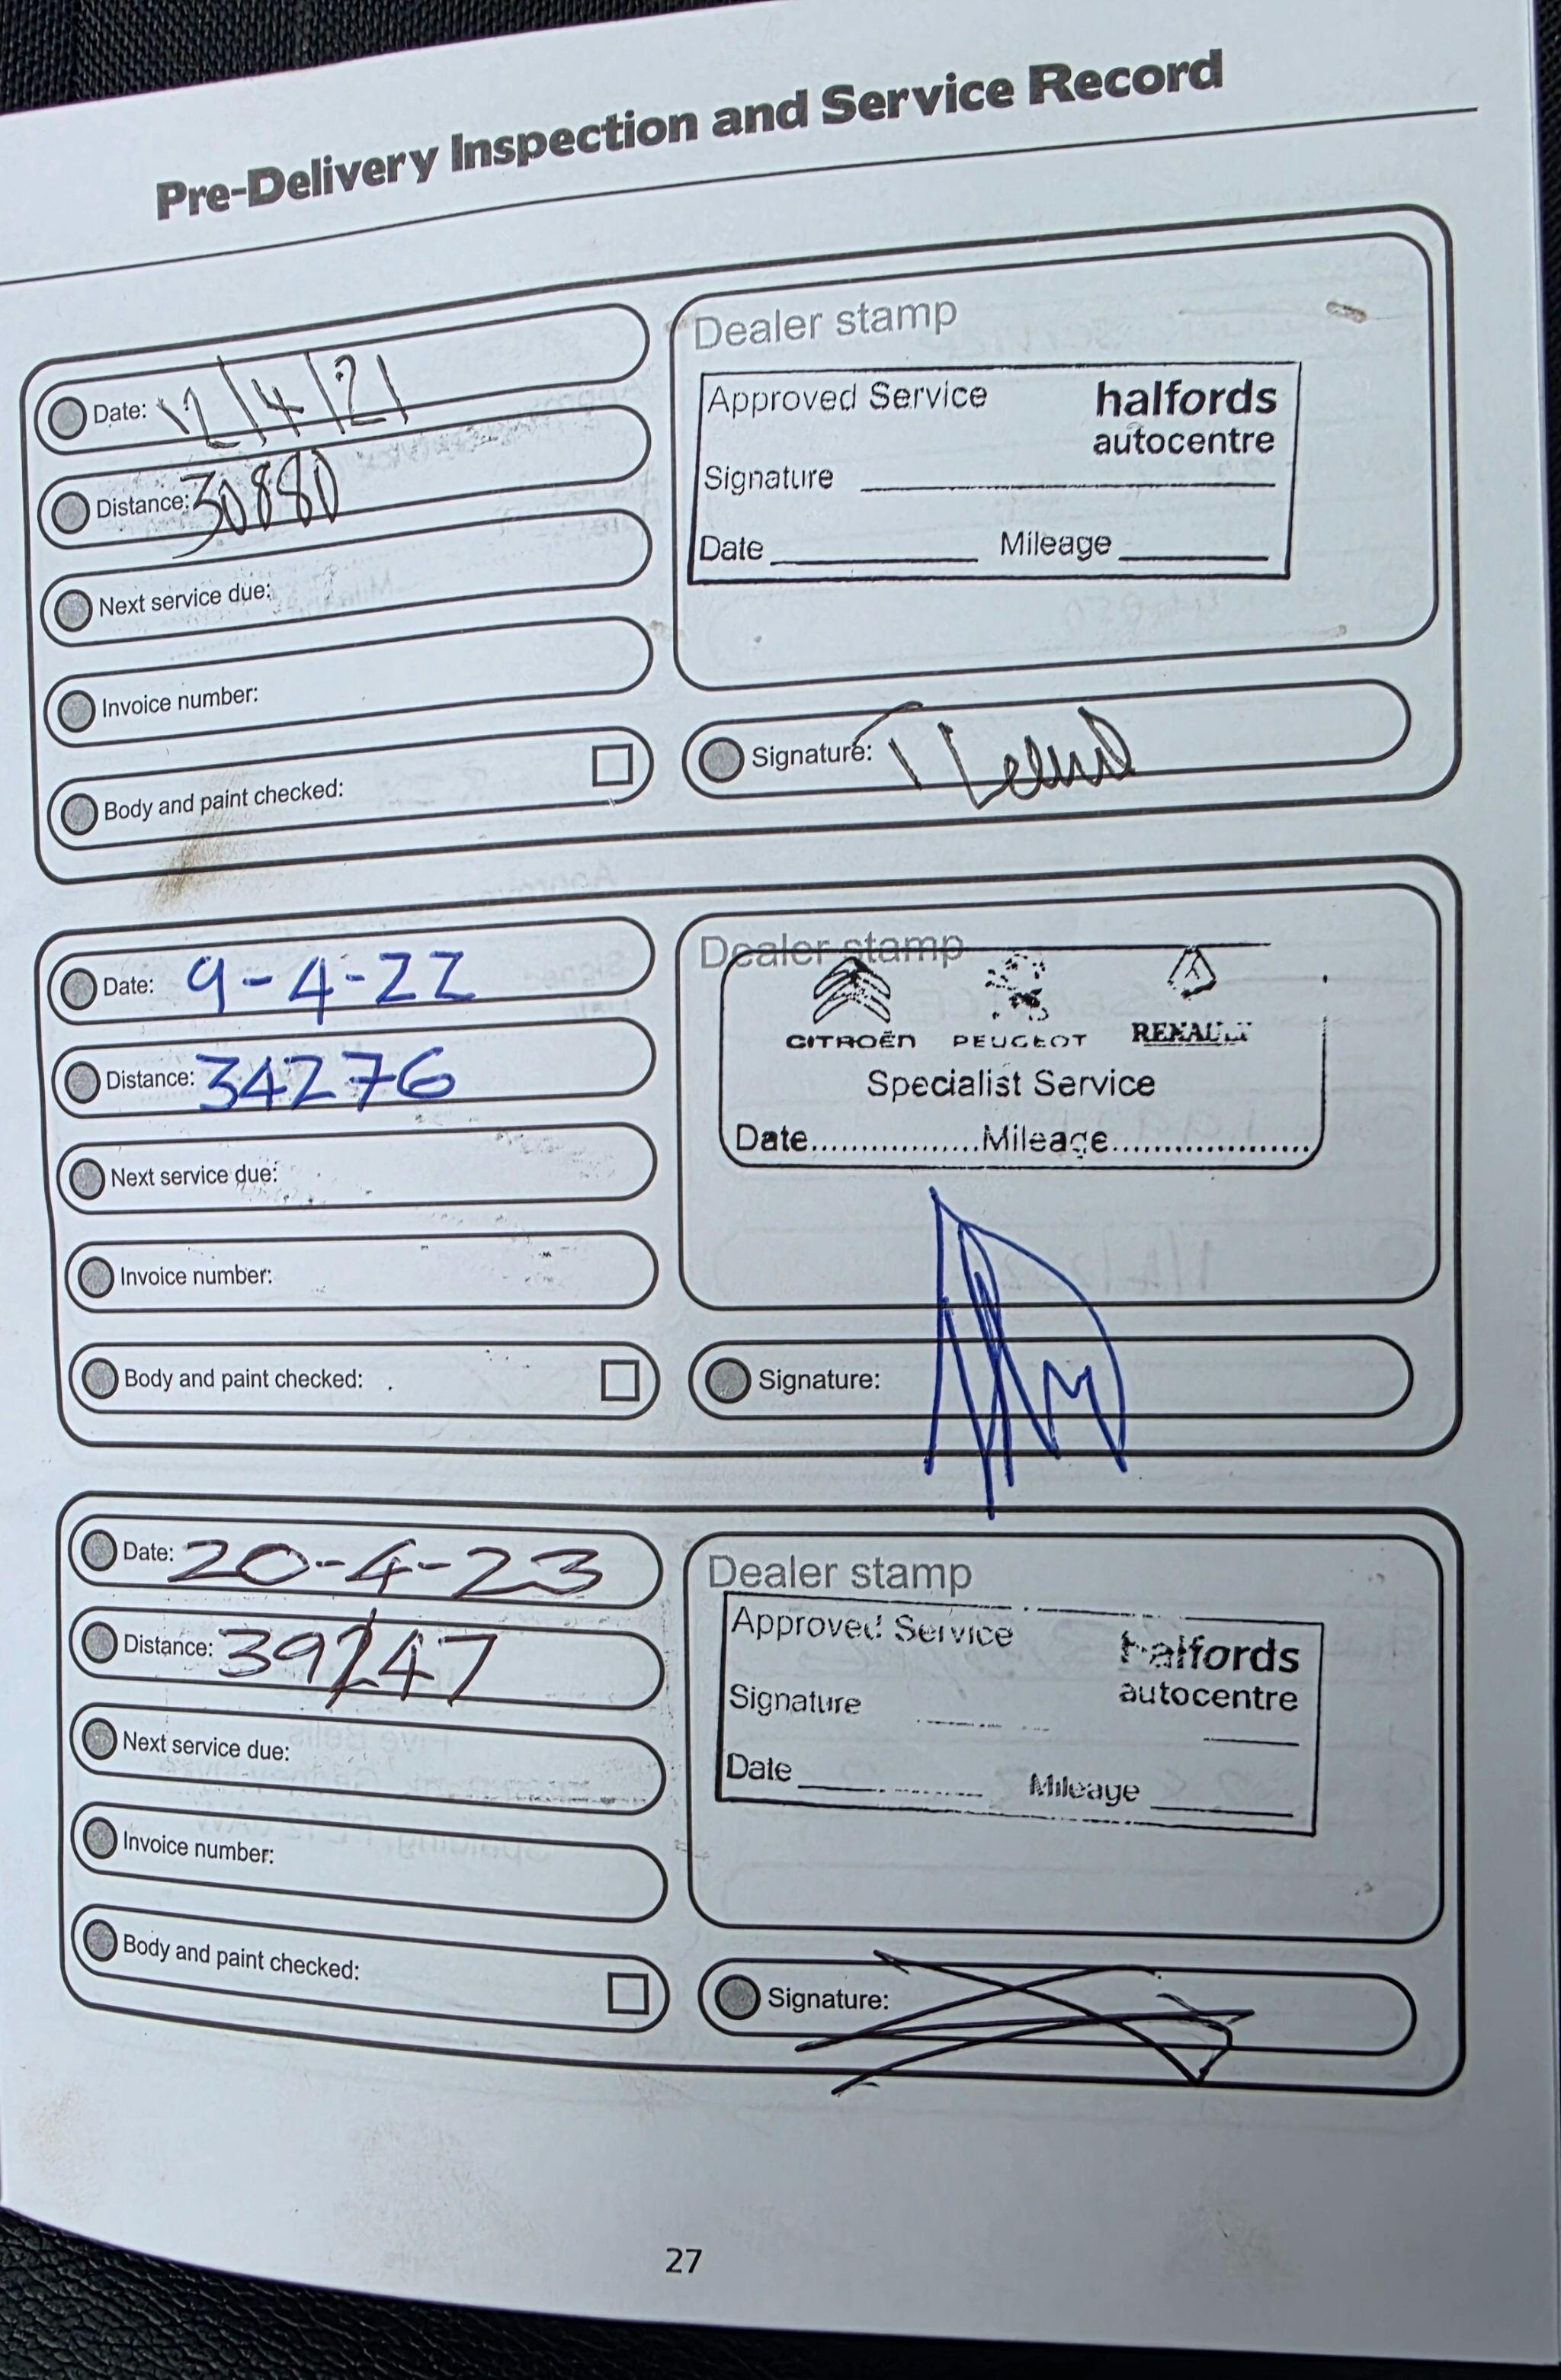 Pre-Delivery Inspection and Service Record
Date: 12/4/21
Distance: 30880
Next service due:
Invoice number:
Body and paint checked:
Dealer stamp
Approved Service
halfords
autocentre
Signature
Date
Mileage
Signature:
Date: 9-4-22
Distance: 34276
Next service due:
Invoice number:
Body and paint checked:
Dealer stamp
CITROËN PEUGEOT RENAULT
Specialist Service
Date.................Mileage....................
Signature:
Date: 20-4-23
Distance: 39247
Next service due:
Invoice number:
Body and paint checked:
Dealer stamp
Approved Service
halfords
autocentre
Signature
Date
Mileage
Signature:
27